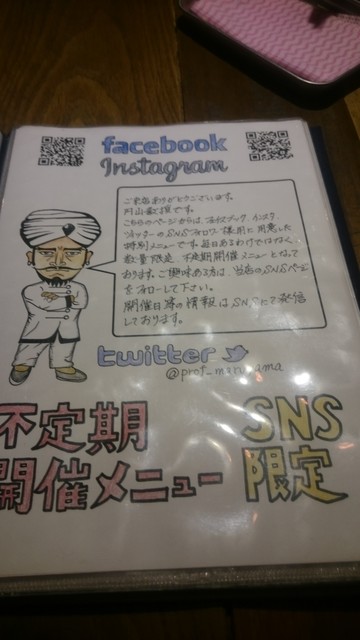 facebook
Instagram
ご来店ありがとうございます。
円山教授です。
こちらのページからは、フェイスブック、インスタ
ツイッターのSNSフォロワー様用に用意した
特別メニューです。毎日あるわけではなく、
数量限定、不定期開催メニューとなって
おります。ご興味ある方は、当店のSNSページ
をフォローして下さい。
開催日等の情報はSNSにて発信
しております。
twitter
@prof_maruyama
不定期 SNS
開催メニュー 限定